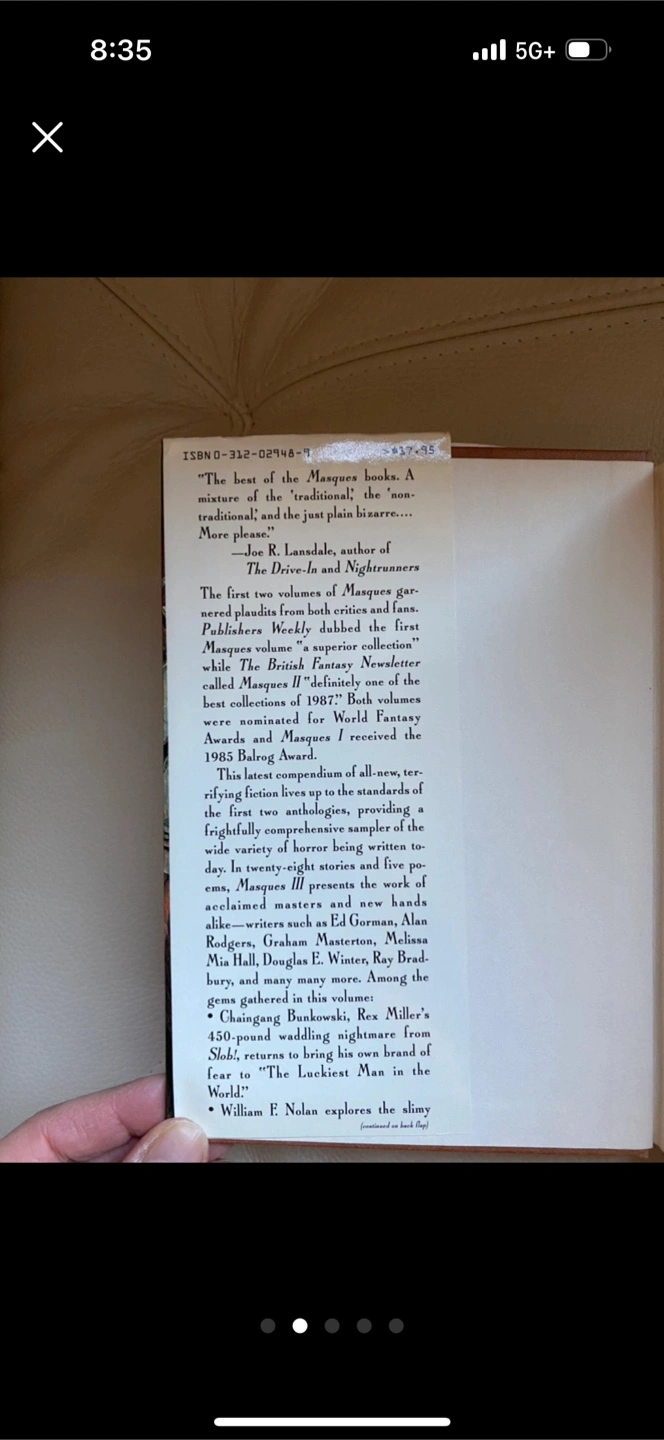 8:35
5G+
ISBN 0-312-02948-9 >$17.95
"The best of the Masques books. A
mixture of the 'traditional,' the 'non-
traditional,' and the just plain bizarre....
More please."
—Joe R. Lansdale, author of
The Drive-In and Nightrunners
The first two volumes of Masques gar-
nered plaudits from both critics and fans.
Publishers Weekly dubbed the first
Masques volume "a superior collection"
while The British Fantasy Newsletter
called Masques II "definitely one of the
best collections of 1987." Both volumes
were nominated for World Fantasy
Awards and Masques I received the
1985 Balrog Award.
This latest compendium of all-new, ter-
rifying fiction lives up to the standards of
the first two anthologies, providing a
frightfully comprehensive sampler of the
wide variety of horror being written to-
day. In twenty-eight stories and five po-
ems, Masques III presents the work of
acclaimed masters and new hands
alike—writers such as Ed Gorman, Alan
Rodgers, Graham Masterton, Melissa
Mia Hall, Douglas E. Winter, Ray Brad-
bury, and many many more. Among the
gems gathered in this volume:
• Chaingang Bunkowski, Rex Miller's
450-pound waddling nightmare from
Slob!, returns to bring his own brand of
fear to "The Luckiest Man in the
World."
• William F. Nolan explores the slimy
(continued on back flap)